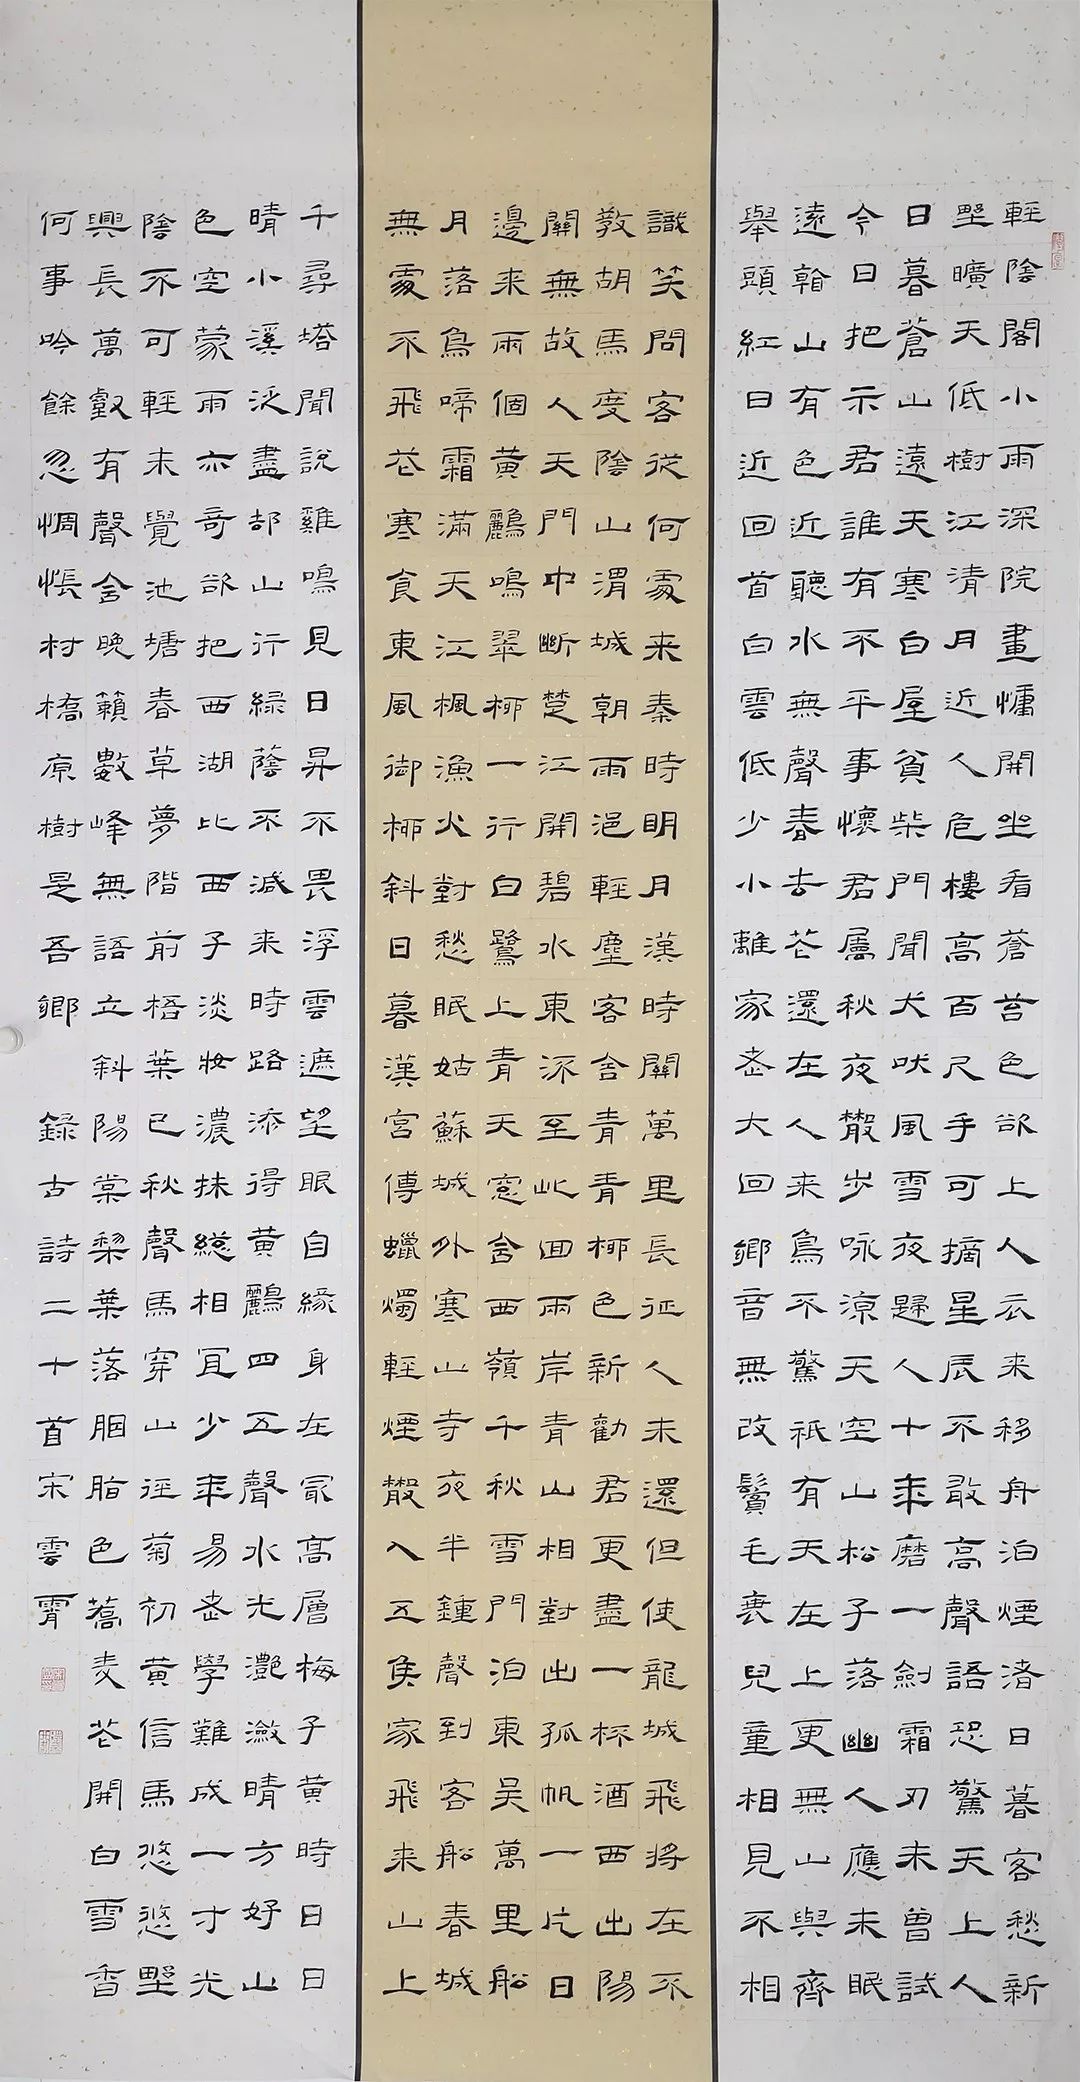 輕陰閣小雨深院晝慵開坐看蒼苔色欲上人衣来移舟泊煙渚日暮客愁新
野曠天低樹江清月近人危樓高百尺手可摘星辰不敢高聲語恐驚天上人
日暮蒼山遠天寒白屋貧柴門聞犬吠風雪夜歸人十年磨一劍霜刃未曾試
今日把示君誰有不平事懷君屬秋夜散步咏涼天空山松子落幽人應未眠
遠看山有色近聽水無聲春去花還在人来鳥不驚祇有天在上更無山與齊
舉頭紅日近回首白雲低少小離家老大回鄉音無改鬢毛衰兒童相見不相
識笑問客從何處来秦時明月漢時關萬里長征人未還但使龍城飛將在不
教胡馬度陰山渭城朝雨浥輕塵客舍青青柳色新勸君更盡一杯酒西出陽
關無故人天門中斷楚江開碧水東流至此回兩岸青山相對出孤帆一片日
邊来兩個黃鸝鳴翠柳一行白鷺上青天窓含西嶺千秋雪門泊東吳萬里船
月落烏啼霜滿天江楓漁火對愁眠姑蘇城外寒山寺夜半鐘聲到客船春城
無處不飛花寒食東風御柳斜日暮漢宮傳蠟燭輕煙散入五侯家飛来山上
千尋塔聞說雞鳴見日昇不畏浮雲遮望眼自緣身在最高層梅子黃時日日
晴小溪泛盡却山行緑蔭不減来時路添得黃鸝四五聲水光灧瀲晴方好山
色空蒙雨亦奇欲把西湖比西子淡妝濃抹總相宜少年易老學難成一寸光
陰不可輕未覺池塘春草夢階前梧葉已秋聲馬穿山徑菊初黃信馬悠悠野
興長萬壑有聲含晚籟數峰無語立斜陽棠梨葉落胭脂色蕎麥花開白雪香
何事吟餘忽惆悵村橋原樹是吾鄉 錄古詩二十首宋雲霄